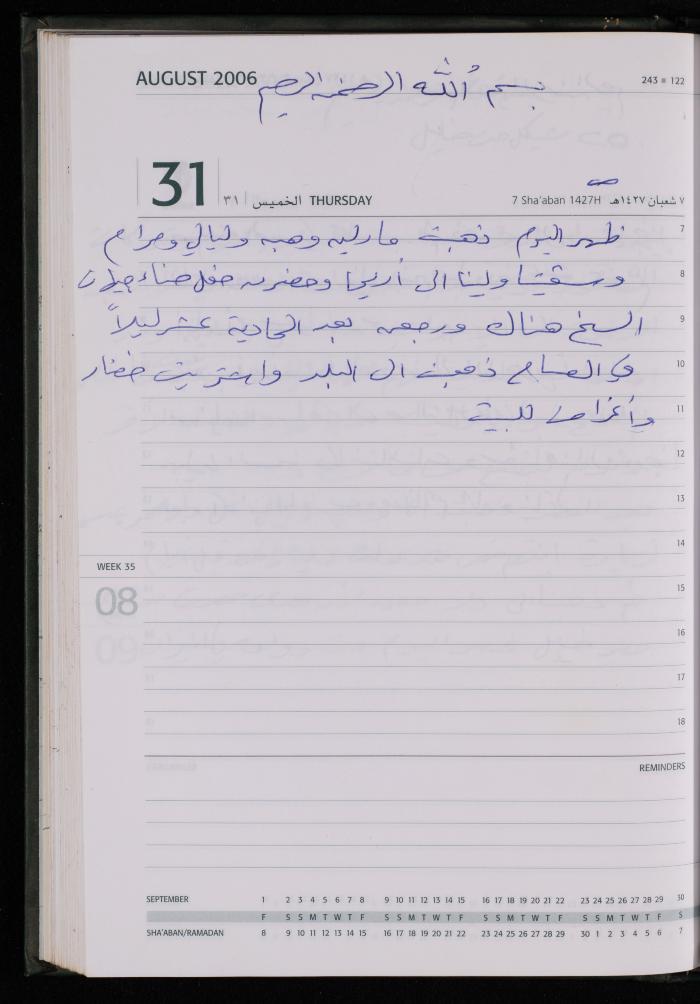 AUGUST 2006
بسم الله الرحمن الرحيم
243 = 122
31
٣١ الخميس THURSDAY
7 Sha'aban 1427H ٧ شعبان ١٤٢٧هـ
7
ظهر اليوم ذهبت مارلين وهبه وليالي ومرام
8
ولينا الى أريحا وحضرت حفل حناء جيلان
9
هناك ورجعن بعد الحادية عشر ليلاً
10
في الصباح ذهبت الى البلد واشتريت خضار
11
وأغراض للبيت
12
13
14
WEEK 35
08
15
16
17
18
REMINDERS
SEPTEMBER 1 2 3 4 5 6 7 8 9 10 11 12 13 14 15 16 17 18 19 20 21 22 23 24 25 26 27 28 29 30
F S S M T W T F S S M T W T F S S M T W T F S S M T W T F S
SHA'ABAN/RAMADAN 8 9 10 11 12 13 14 15 16 17 18 19 20 21 22 23 24 25 26 27 28 29 30 1 2 3 4 5 6 7